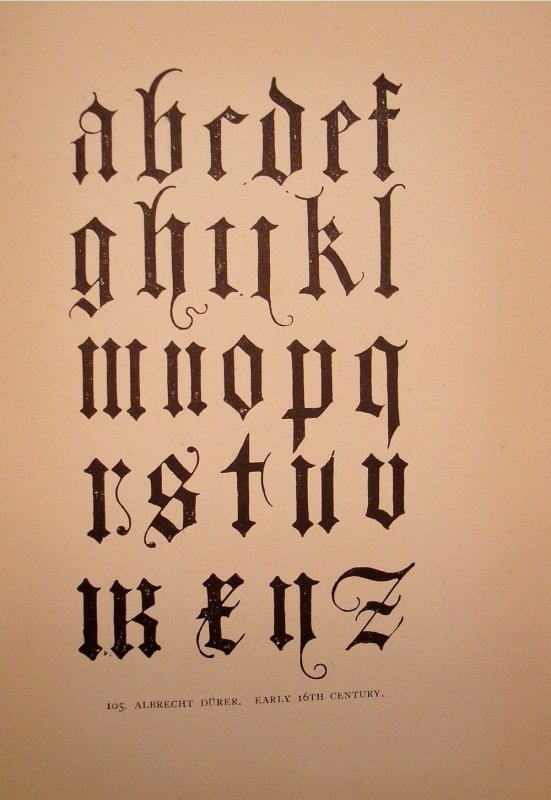 a b c d e f
g h i j k l
m n o p q
r s t u v
w x y z
105. ALBRECHT DÜRER. EARLY 16TH CENTURY.